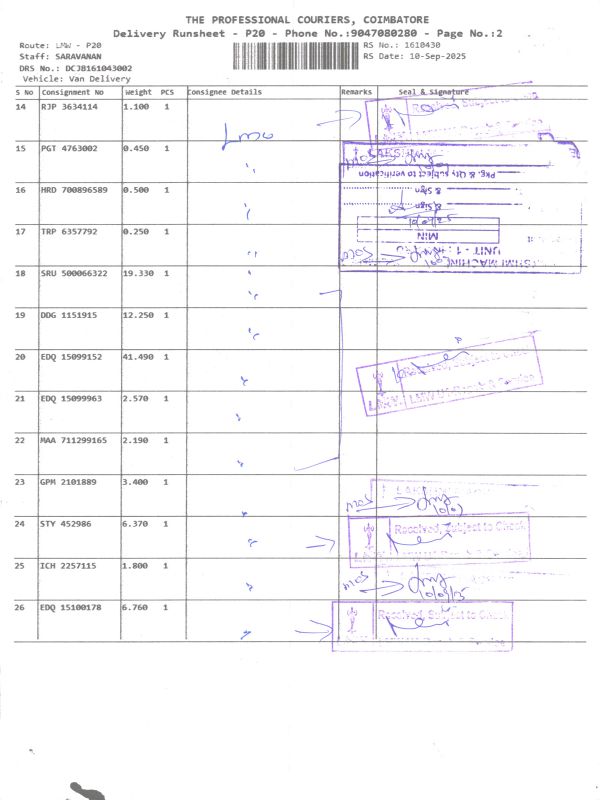 THE PROFESSIONAL COURIERS, COIMBATORE
Delivery Runsheet - P20 - Phone No.:9047080280 - Page No.:2
Route: LMW - P20 RS No.: 1610430
Staff: SARAVANAN RS Date: 10-Sep-2025
DRS No.: DCJB161043002
Vehicle: Van Delivery
S No Consignment No Weight PCS Consignee Details Remarks Seal & Signature
14 RJP 3634114 1.100 1 Lmw Received, Subject to
15 PGT 4763002 0.450 1 "
Pkg. & Qty subject to verification
16 HRD 700896589 0.500 1 " & Sign
& Sign
17 TRP 6357792 0.250 1 "
MIN
UNIT - 1
18 SRU 500066322 19.330 1 " MACHINE
19 DDG 1151915 12.250 1 "
20 EDQ 15099152 41.490 1 " Received, Subject to Check
21 EDQ 15099963 2.570 1 " LMW
22 MAA 711299165 2.190 1 "
23 GPM 2101889 3.400 1 "
24 STY 452986 6.370 1 " Received, Subject to Check
25 ICH 2257115 1.800 1 "
26 EDQ 15100178 6.760 1 " Received, Subject to Check